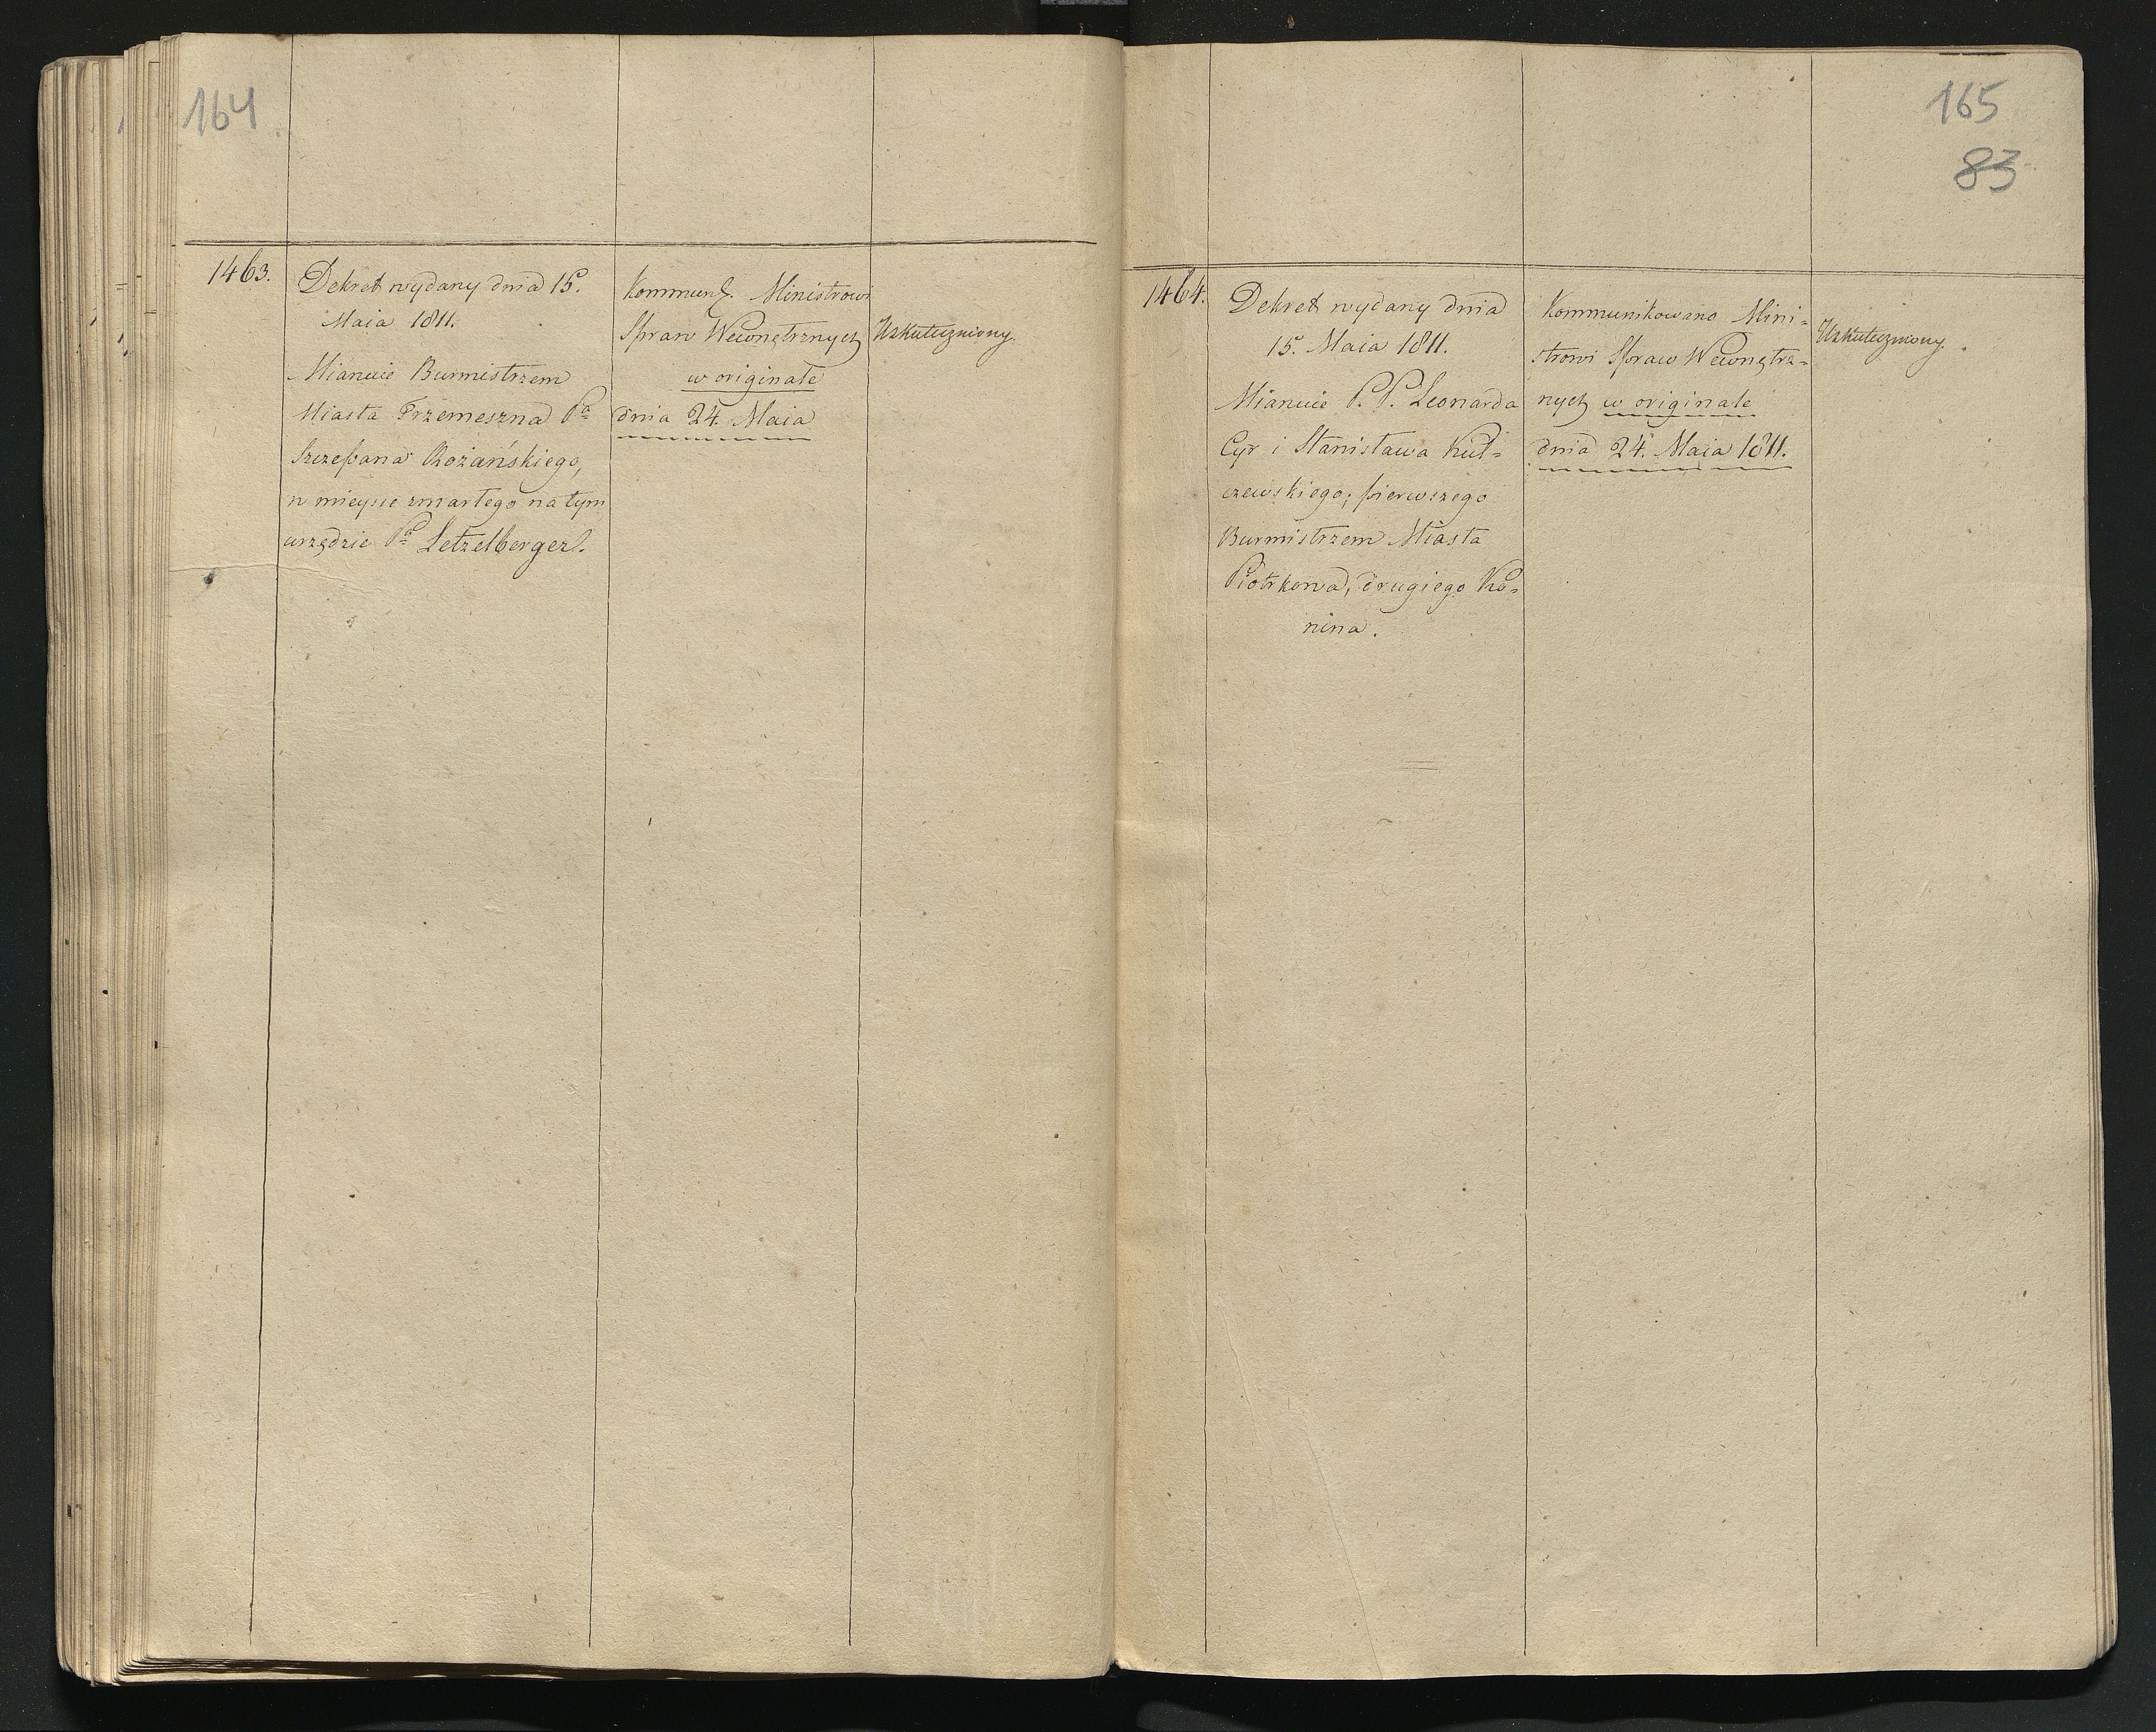 164
1463.
Dekret wydany dnia 15.
Maia 1811.
Mianuie Burmistrzem
Miasta Trzemeszna Pa
Szczepana Rożańskiego,
w mieysce zmarłego na tym
urzędzie Pa Letzelberger.
Kommunik. Ministrowi
Spraw Wewnętrznych
w originale
dnia 24. Maia
Uskuteczniony.
165
83
1464.
Dekret wydany dnia
15. Maia 1811.
Mianuie P.P. Leonarda
Cyr i Stanisława Kul=
czewskiego; pierwszego
Burmistrzem Miasta
Piotrkowa, drugiego Ko=
nina.
Kommunikowano Mini=
strowi Spraw Wewnętrz=
nych w originale
dnia 24. Maia 1811.
Uskuteczniony.